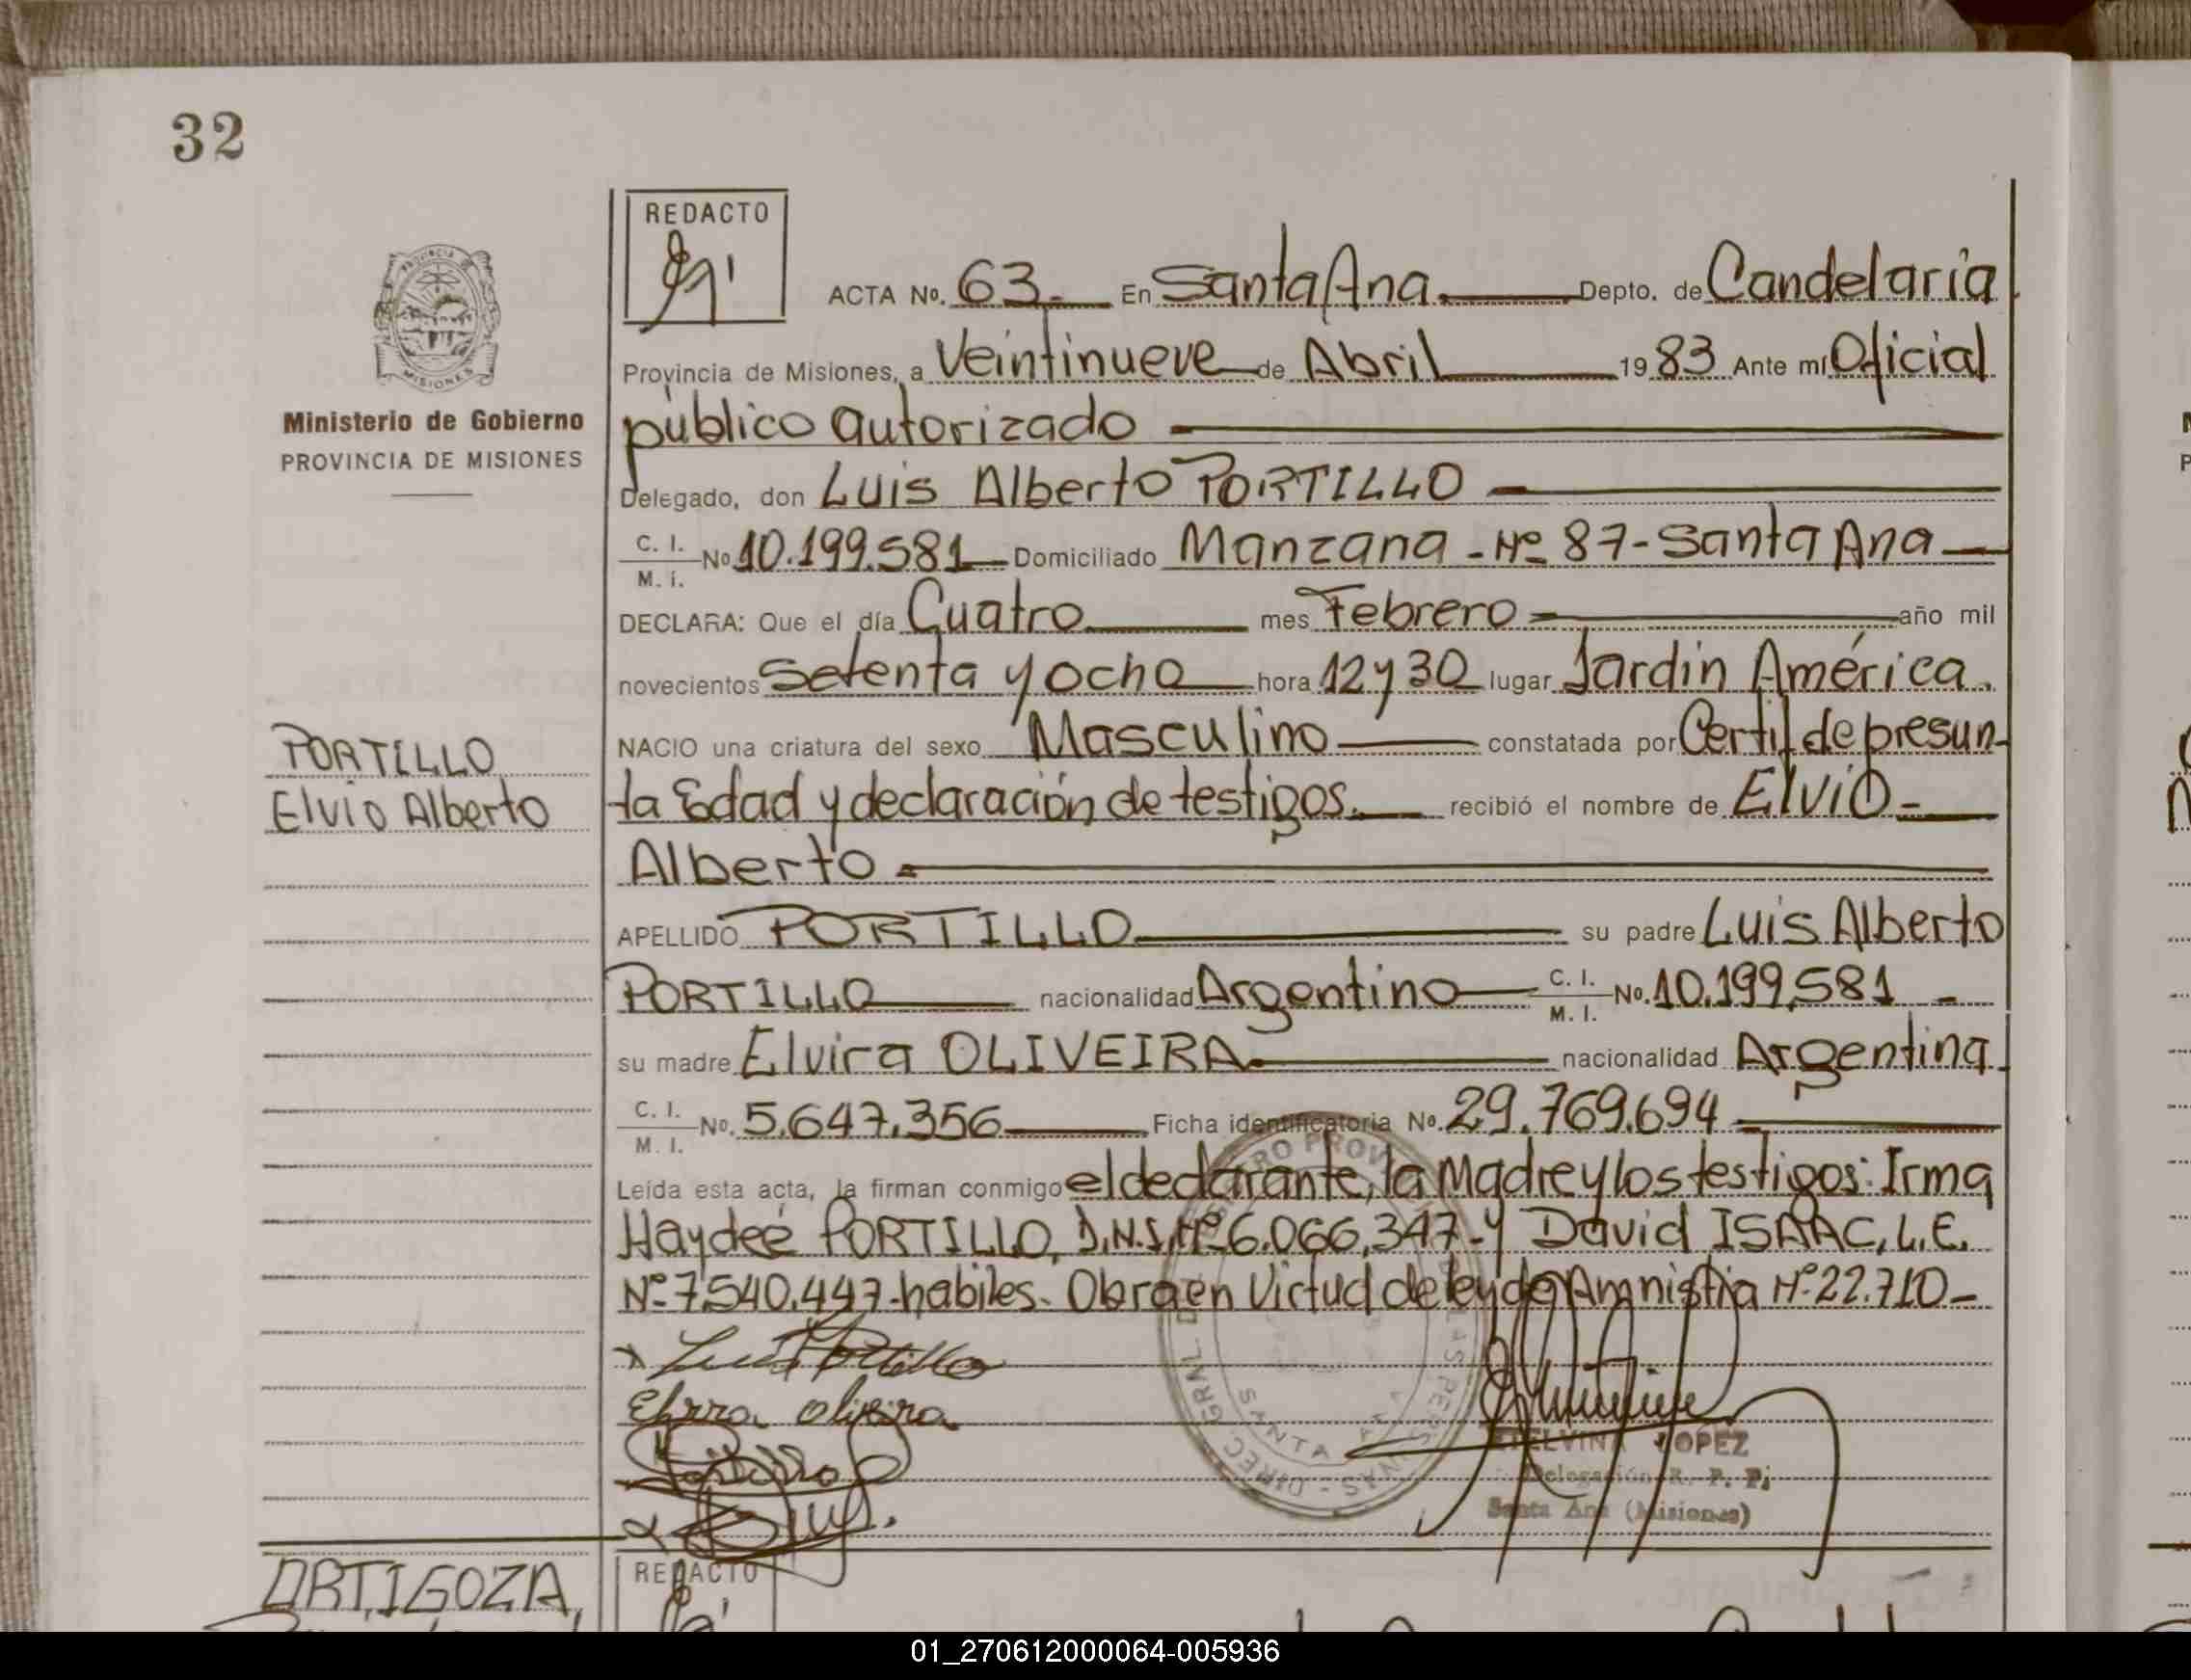 32
REDACTO
ACTA No. 63 En Santa Ana. Depto. de Candelaria
Provincia de Misiones, a Veintinueve de Abril 1983 Ante mí Oficial
público autorizado
Delegado, don Luis Alberto PORTILLO
C. I. M. I. No 10.199.581 Domiciliado Manzana - Nº 87 - Santa Ana
DECLARA: Que el día Cuatro mes Febrero año mil
novecientos Setenta y ocho hora 12 y 30 lugar Jardin América.
NACIO una criatura del sexo Masculino constatada por Certif. de presun-
ta Edad y declaración de testigos. recibió el nombre de Elvio
Alberto
APELLIDO PORTILLO su padre Luis Alberto
PORTILLO nacionalidad Argentino C. I. M. I. No. 10.199.581 -
su madre Elvira OLIVEIRA nacionalidad Argentina
C. I. M. I. No. 5.647.356 Ficha identificatoria No. 29.769.694
Leída esta acta, la firman conmigo el declarante, la Madre y los testigos: Irma
Haydeé PORTILLO, D.N.I. Nº 6.066.347 - y David ISAAC, L.E.
Nº 7.540.447 - habiles. Obra en Virtud de ley de Amnistia Nº 22.710 -
Luis Portillo
Elvira Oliveira
Portillo
ETELVINA LOPEZ
Delegación R. P. P.
Santa Ana (Misiones)
DIREC. GRAL. DEL REGISTRO PROVINCIAL DE LAS PERSONAS
SANTA ANA
PROVINCIA DE MISIONES
Ministerio de Gobierno
PROVINCIA DE MISIONES
PORTILLO
Elvio Alberto
ORTIGOZA,
REDACTO
01_270612000064-005936